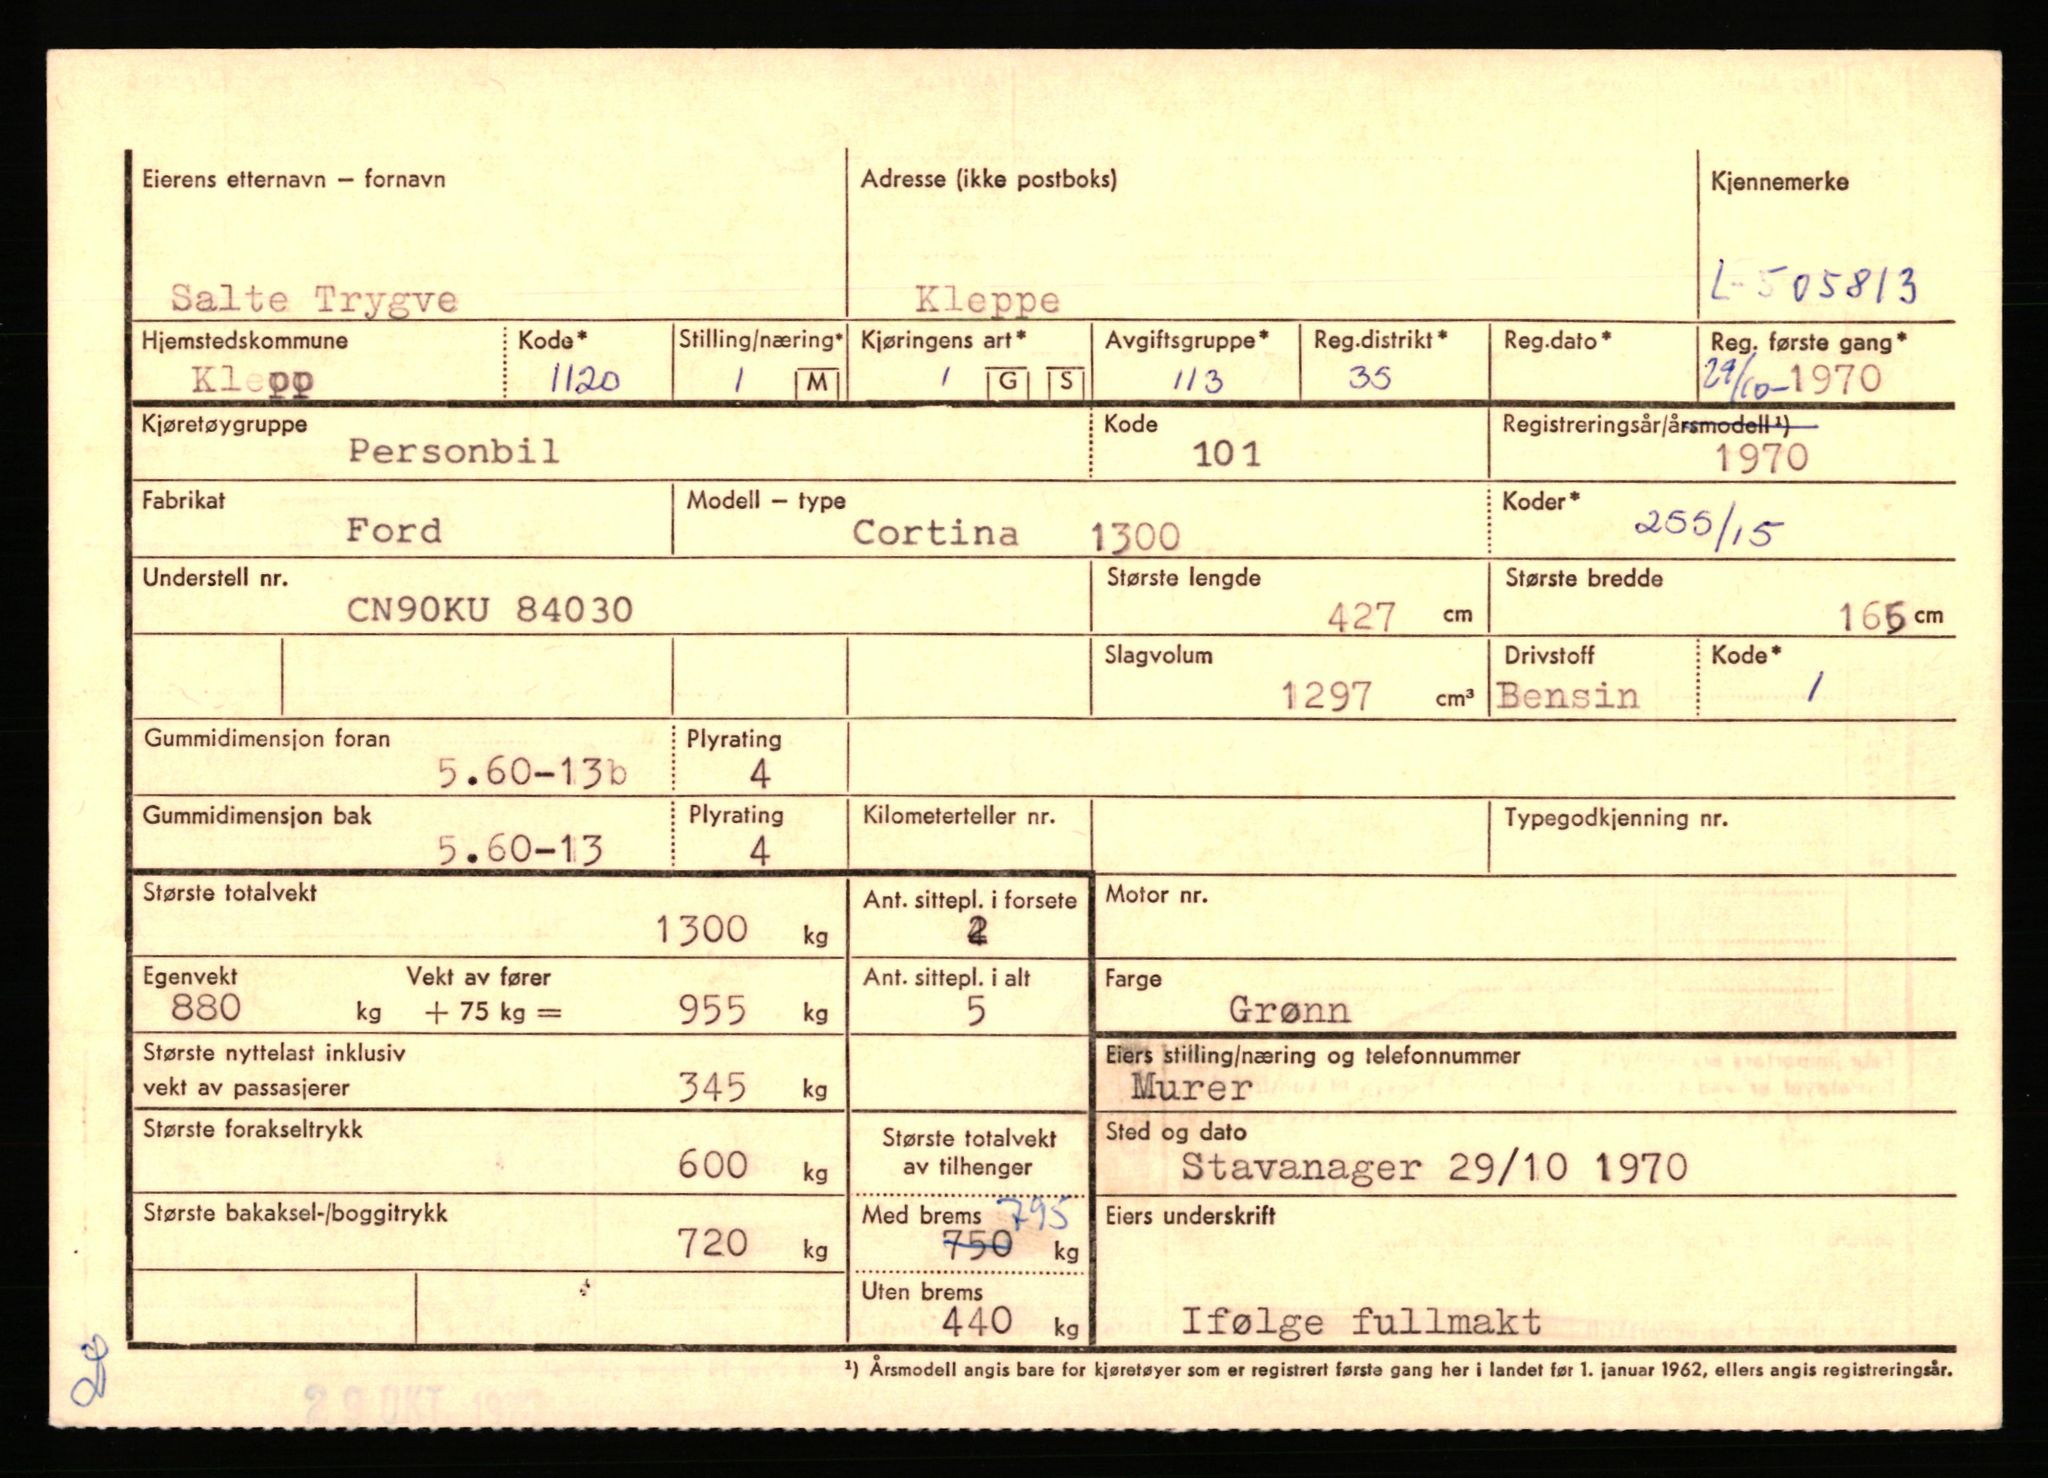 Eierens etternavn – fornavn Adresse (ikke postboks) Kjennemerke
Salte Trygve Kleppe L-505813
Hjemstedskommune Kode* Stilling/næring* Kjøringens art* Avgiftsgruppe* Reg.distrikt* Reg.dato* Reg. første gang*
Klepp 1120 1 M 1 G S 113 35 29/10-1970
Kjøretøygruppe Kode Registreringsår/årsmodell ¹)
Personbil 101 1970
Fabrikat Modell – type Koder*
Ford Cortina 1300 255/15
Understell nr. Største lengde Største bredde
CN90KU 84030 427 cm 165 cm
Slagvolum Drivstoff Kode*
1297 cm³ Bensin 1
Gummidimensjon foran Plyrating
5.60-13b 4
Gummidimensjon bak Plyrating Kilometerteller nr. Typegodkjenning nr.
5.60-13 4
Største totalvekt Ant. sittepl. i forsete Motor nr.
1300 kg 2
Egenvekt Vekt av fører Ant. sittepl. i alt Farge
880 kg + 75 kg = 955 kg 5 Grønn
Største nyttelast inklusiv Eiers stilling/næring og telefonnummer
vekt av passasjerer 345 kg Murer
Største forakseltrykk Største totalvekt Sted og dato
600 kg av tilhenger Stavanager 29/10 1970
Største bakaksel-/boggitrykk Med brems 795 Eiers underskrift
720 kg 750 kg
Uten brems
440 kg Ifølge fullmakt
¹) Årsmodell angis bare for kjøretøyer som er registrert første gang her i landet før 1. januar 1962, ellers angis registreringsår.